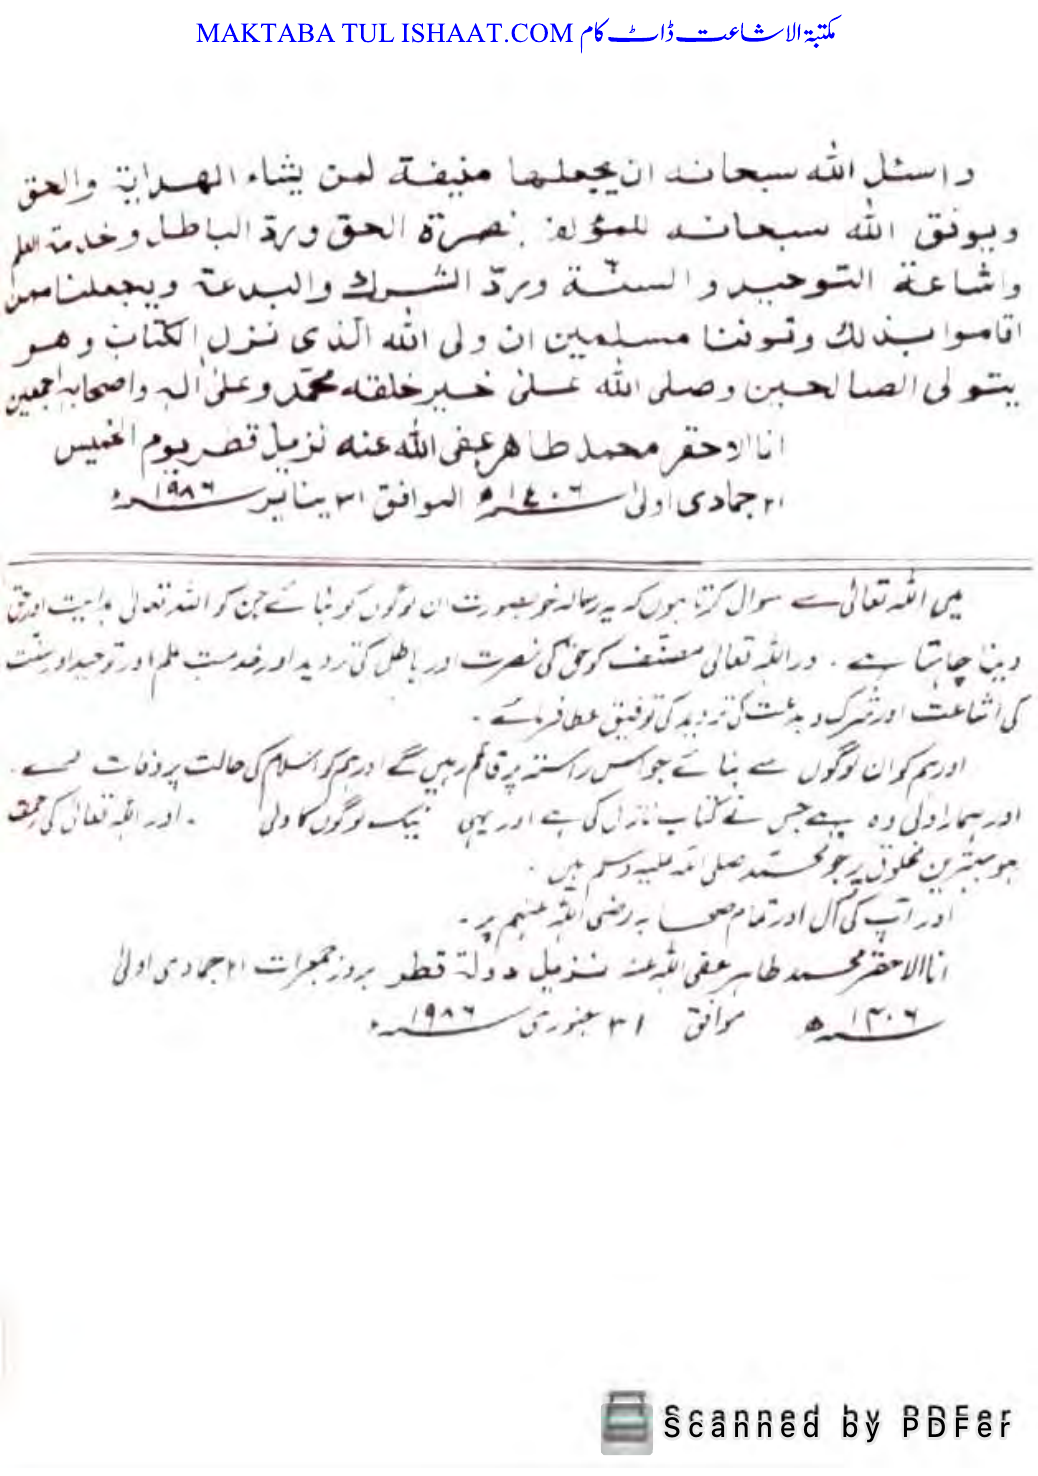 MAKTABA TUL ISHAAT.COM مکتبۃ الاشاعت ڈاٹ کام
واسئل الله سبحانه ان يجعلها منيفة لمن يشاء الهداية والحق
ويوفق الله سبحانه للمؤلف نصرة الحق وردّ الباطل وخدمة العلم
واشاعة التوحيد والسنّة وردّ الشرك والبدعة ويجعلنا ممن
اقاموا بذلك وتوفنا مسلمين ان ولى الله الّذى نزل الكتاب وهو
يتولى الصالحين وصلى الله على خير خلقه محمّد وعلى اٰله واصحابه اجمعين
انا الاحقر محمد طاهر عفى الله عنه نزيل قطر يوم الخميس
٢١ جمادى اولىٰ ١٤٠٦ھ الموافق ٣١ يناير ١٩٨٦ء
میں اللہ تعالیٰ سے سوال کرتا ہوں کہ یہ رسالہ خوبصورت ان لوگوں کو بنائے جن کو اللہ تعالیٰ ہدایت اور حق
دینا چاہتا ہے۔ اور اللہ تعالیٰ مصنّف کو حق کی نصرت اور باطل کی تردید اور خدمت علم اور توحید اور سنّت
کی اشاعت اور شرک و بدعت کی تردید کی توفیق عطا فرمائے۔
اور ہم کو ان لوگوں سے بنائے جو اس راستہ پر قائم رہیں گے اور ہم کو اسلام کی حالت پر وفات دے۔
اور ہمارا ولی وہ ہے جس نے کتاب نازل کی ہے اور یہی نیک لوگوں کا ولی ۔ اور اللہ تعالیٰ کی رحمت
ہو بہترین مخلوق پر جو محمّد صلی اللہ علیہ وسلم ہیں۔
اور آپ کی آل اور تمام صحابہ رضی اللہ عنہم پر۔
انا الاحقر محمد طاہر عفی اللہ عنہ نزیل دولة قطر بروز جمعرات ۲۱ جمادی اولیٰ
۱۴۰۶ھ موافق ۳۱ جنوری ۱۹۸۶ء
Scanned by PDFer